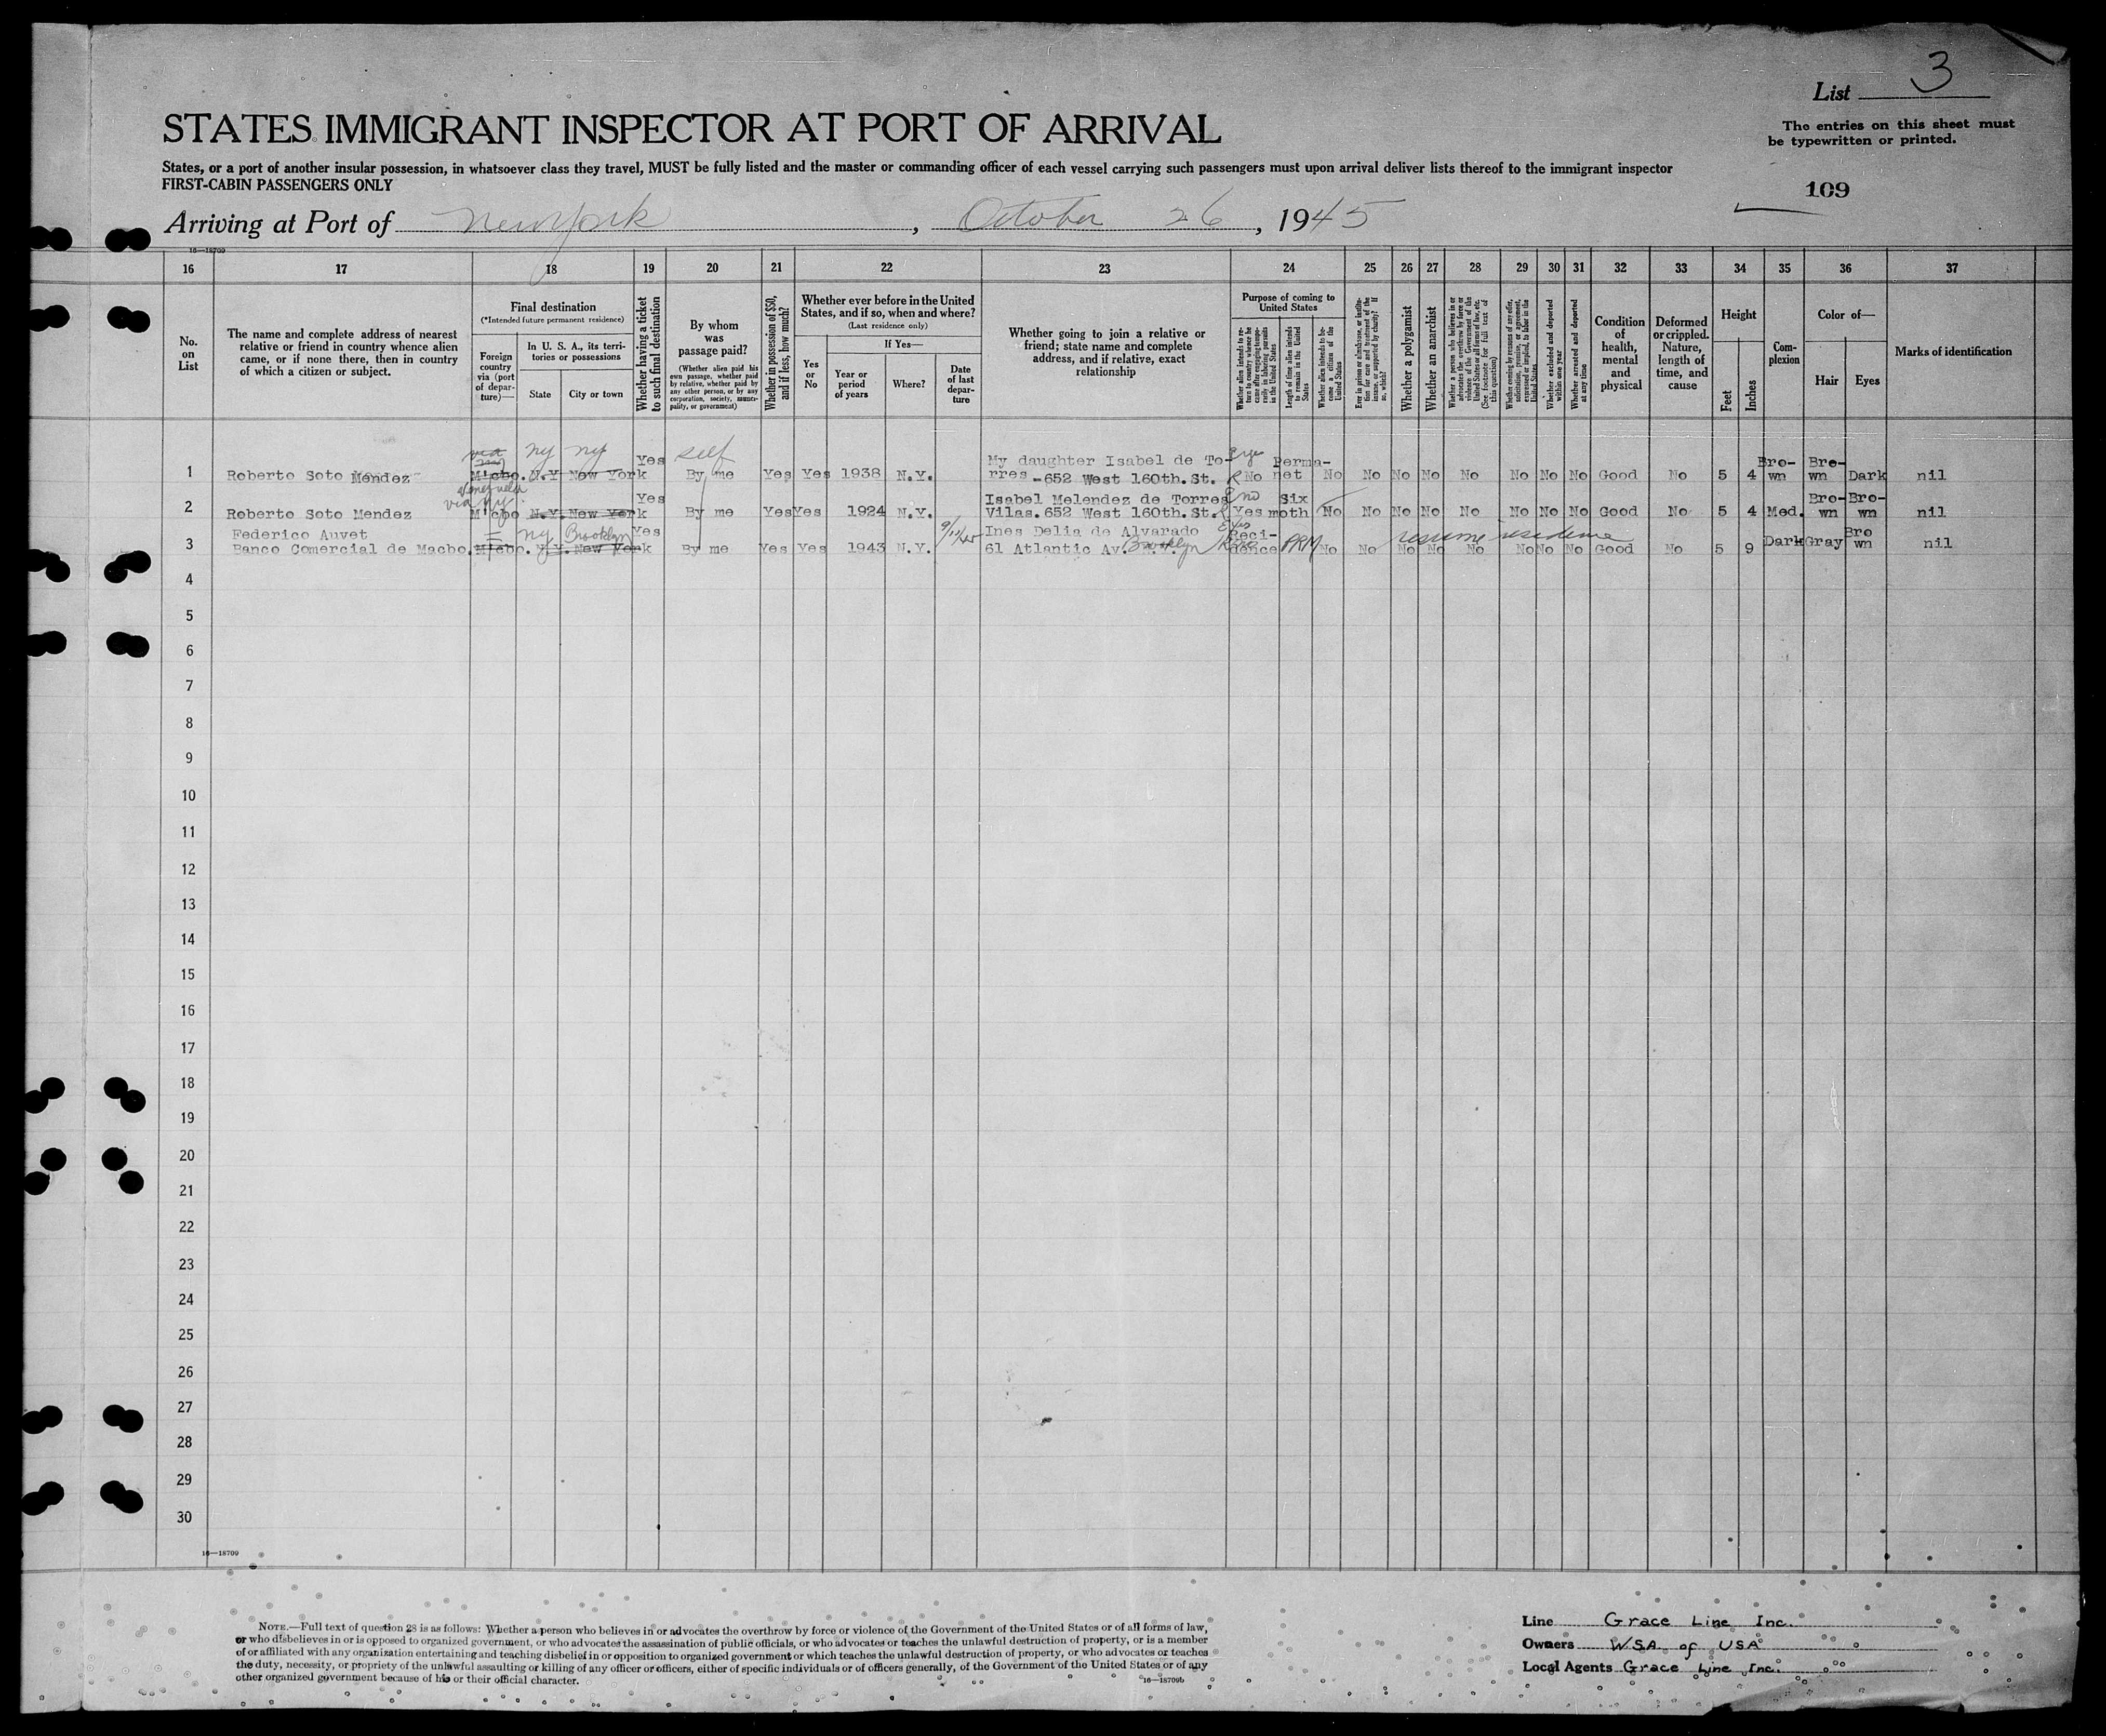 List 3
The entries on this sheet must
be typewritten or printed.
STATES IMMIGRANT INSPECTOR AT PORT OF ARRIVAL
States, or a port of another insular possession, in whatsoever class they travel, MUST be fully listed and the master or commanding officer of each vessel carrying such passengers must upon arrival deliver lists thereof to the immigrant inspector
FIRST-CABIN PASSENGERS ONLY
109
Arriving at Port of New York, October 26, 1945
16—18709
16 17 18 19 20 21 22 23 24 25 26 27 28 29 30 31 32 33 34 35 36 37
No.
on
List
The name and complete address of nearest
relative or friend in country whence alien
came, or if none there, then in country
of which a citizen or subject.
Final destination
(*Intended future permanent residence)
Foreign
country
via (port
of depar-
ture)—
In U. S. A., its terri-
tories or possessions
State
City or town
Whether having a ticket
to such final destination
By whom
was
passage paid?
(Whether alien paid his
own passage, whether paid
by relative, whether paid by
any other person, or by any
corporation, society, munici-
pality, or government)
Whether in possession of $50,
and if less, how much?
Whether ever before in the United
States, and if so, when and where?
(Last residence only)
Yes
or
No
If Yes—
Year or
period
of years
Where?
Date
of last
depar-
ture
Whether going to join a relative or
friend; state name and complete
address, and if relative, exact
relationship
Purpose of coming to
United States
Whether alien intends to re-
turn to country whence he
came after engaging tempo-
rarily in laboring pursuits
in the United States
Length of time alien intends
to remain in the United
States
Whether alien intends to be-
come a citizen of the
United States
Ever in prison or almshouse, or institu-
tion for care and treatment of the
insane, or supported by charity? If
so, which?
Whether a polygamist
Whether an anarchist
Whether a person who believes in or
advocates the overthrow by force or
violence of the Government of the
United States or all forms of law, etc.
(See footnote for full text of
this question)
Whether coming by reason of any offer,
solicitation, promise, or agreement,
expressed or implied, to labor in the
United States
Whether excluded and deported
within one year
Whether arrested and deported
at any time
Condition
of
health,
mental
and
physical
Deformed
or crippled.
Nature,
length of
time, and
cause
Height
Feet
Inches
Com-
plexion
Color of—
Hair
Eyes
Marks of identification
via ny ny self
Yes My daughter Isabel de To- Perma- Bro- Bro-
1 Roberto Soto Mendez M'cbo. N.Y New York By me Yes Yes 1938 N.Y. rres -652 West 160th. St. R No net No No No No No No No No Good No 5 4 wn wn Dark nil
Venezuela
via ny. Yes Isabel Melendez de Torres no Six Bro- Bro-
2 Roberto Soto Mendez M'cbo N.Y. New York By me Yes Yes 1924 N.Y. Vilas. 652 West 160th. St. Yes moth No No No No No No No No Good No 5 4 Med. wn wn nil
Federico Auvet ny Brooklyn Yes Ines Delia de Alvarado Reci- resume residence Bro
3 Banco Comercial de Macbo. M'cbo. N.Y. New York By me Yes Yes 1943 N.Y. 61 Atlantic Av. N.Y. Brooklyn dence PRM No No No No No No No No Good No 5 9 Dark Gray wn nil
4
5
6
7
8
9
10
11
12
13
14
15
16
17
18
19
20
21
22
23
24
25
26
27
28
29
30
16—18709
NOTE.—Full text of question 28 is as follows: Whether a person who believes in or advocates the overthrow by force or violence of the Government of the United States or of all forms of law,
or who disbelieves in or is opposed to organized government, or who advocates the assassination of public officials, or who advocates or teaches the unlawful destruction of property, or is a member
of or affiliated with any organization entertaining and teaching disbelief in or opposition to organized government or which teaches the unlawful destruction of property, or who advocates or teaches
the duty, necessity, or propriety of the unlawful assaulting or killing of any officer or officers, either of specific individuals or of officers generally, of the Government of the United States or of any
other organized government because of his or their official character.
16—18709b
Line Grace Line Inc.
Owners WSA of USA
Local Agents Grace Line Inc.